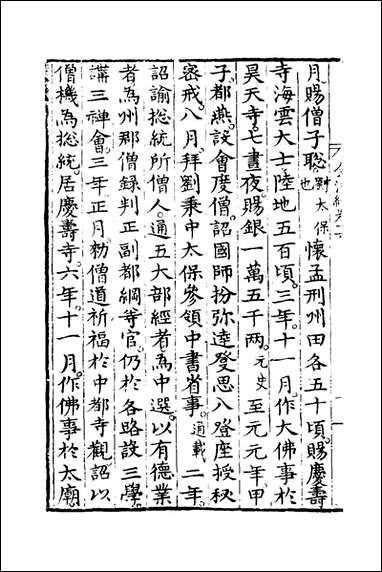 月賜僧子聰劉太保也懷孟刑州田各五十頃。賜慶壽
寺海雲大士陸地五百頃。三年。十一月。作大佛事於
昊天寺。七晝夜。賜銀一萬五千兩。元史 至元元年甲
子都燕。設會度僧。詔國師扮弥達發思八登座授秘
密戒。八月。拜劉秉中太保參領中書省事。通載 二年。
詔諭捴統所僧人。通五大部經者為中選。以有德業
者為州郡僧録判正副都綱等官。仍於各路設三學
講三禪會。三年正月。勑僧道祈福於中都寺觀。詔以
僧機為捴統。居慶壽寺。六年。十一月。作佛事於太廟。